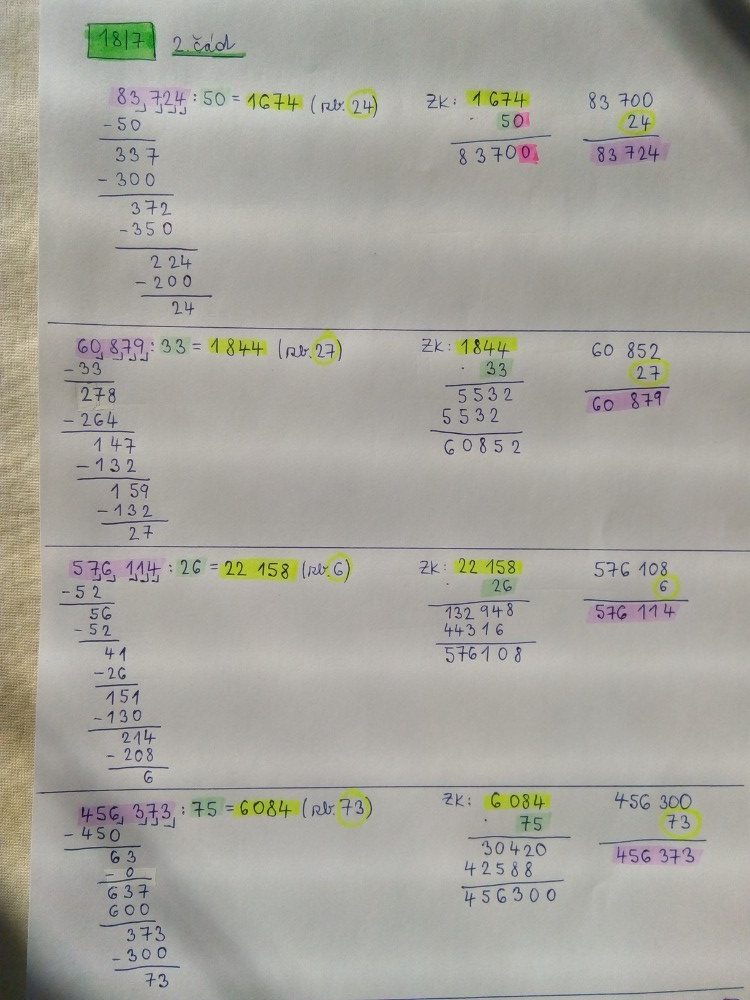 18/7 2. část
83 724 : 50 = 1674 (zb. 24)
-50
337
-300
372
-350
224
-200
24
ZK: 1 674
· 50
83700
83 700
24
83 724
60 879 : 33 = 1844 (zb. 27)
-33
278
-264
147
-132
159
-132
27
ZK: 1844
· 33
5532
5532
60852
60 852
27
60 879
576 114 : 26 = 22 158 (zb. 6)
-52
56
-52
41
-26
151
-130
214
-208
6
ZK: 22 158
· 26
132 948
44316
576108
576 108
6
576 114
456 373 : 75 = 6084 (zb. 73)
-450
63
-0
637
600
373
-300
73
ZK: 6 084
· 75
30420
42588
456300
456 300
73
456 373